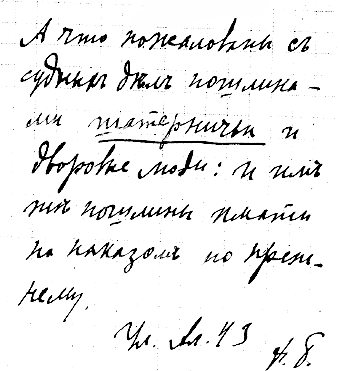 А что пожалованы съ
судныхъ дѣлъ пошлина-
ми шатерничьи и
дворовые люди: и имъ
тѣ пошлины имати
по наказомъ по преж-
нему.
Ул. Ал. 43